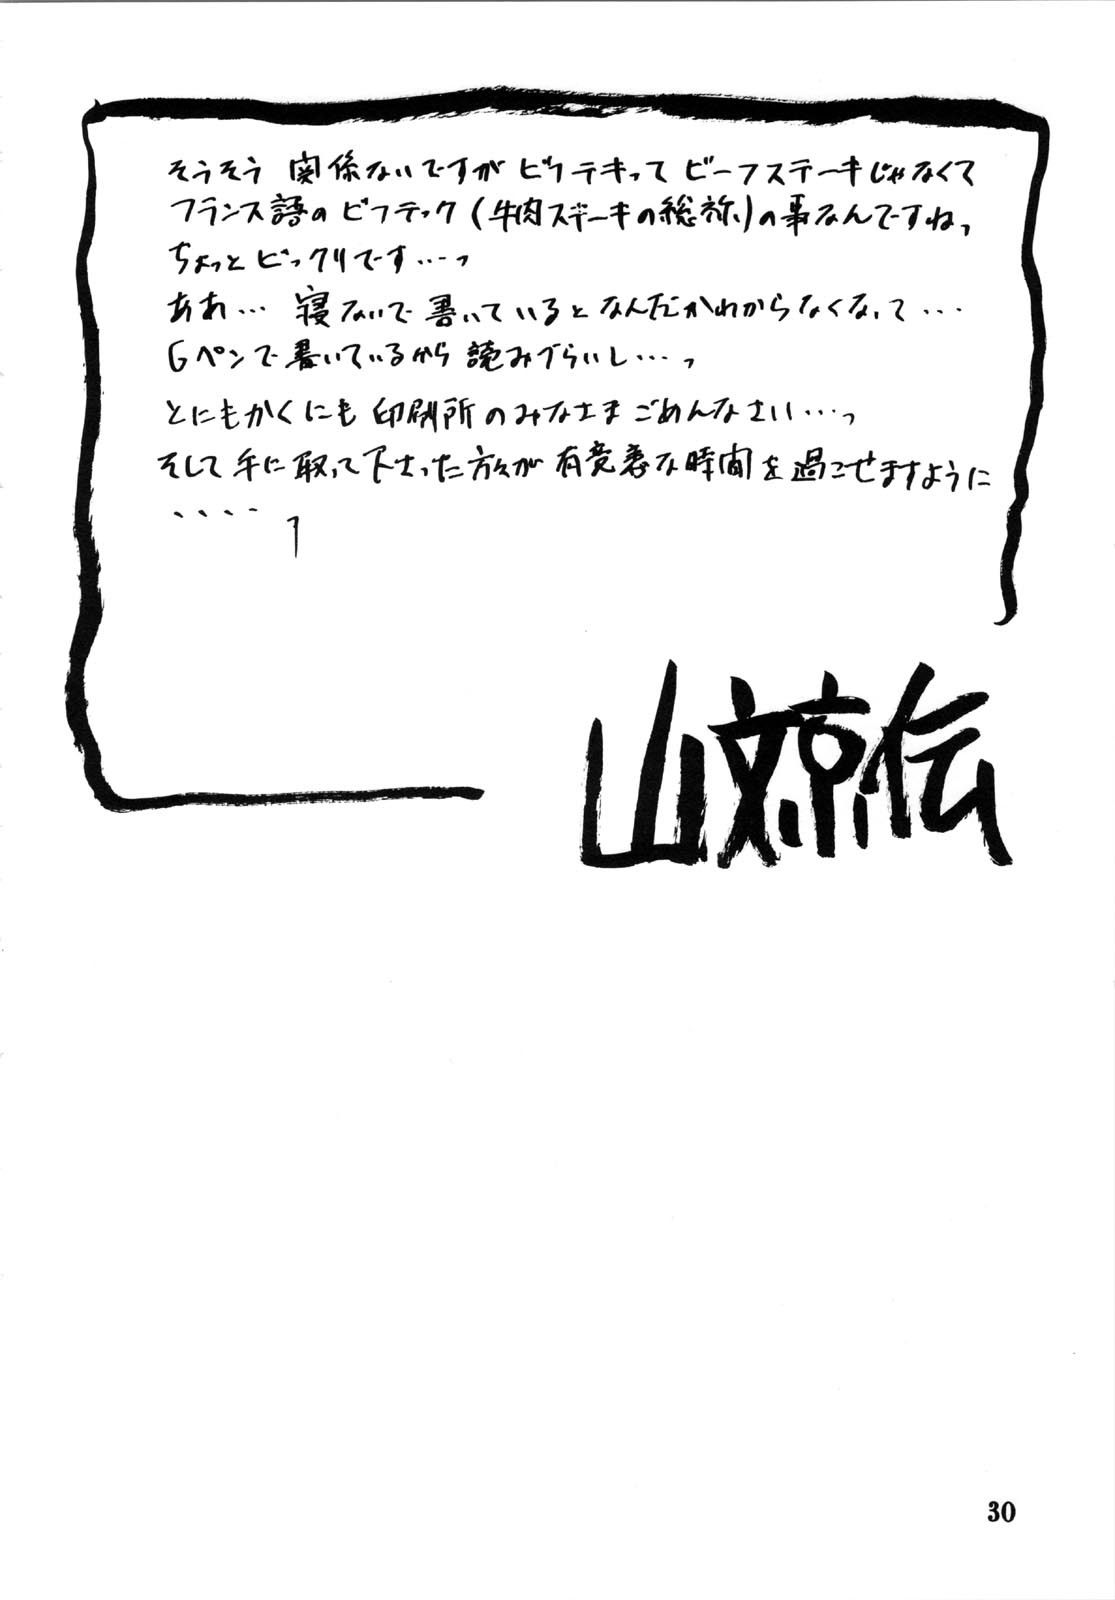 そうそう 関係ないですが ビフテキって ビーフステーキじゃなくて
フランス語の ビフテック (牛肉ステーキの総称)の事なんですねっ
ちょっと ビックリです…っ
ああ… 寝ないで 書いていると なんだかわからなくなって…
Gペンで書いているから 読みづらいし…っ
とにもかくにも 印刷所のみなさま ごめんなさい…っ
そして 手に取って下さった方々が 有意義な時間を過ごせますように
・・・・っ
山文京伝
30